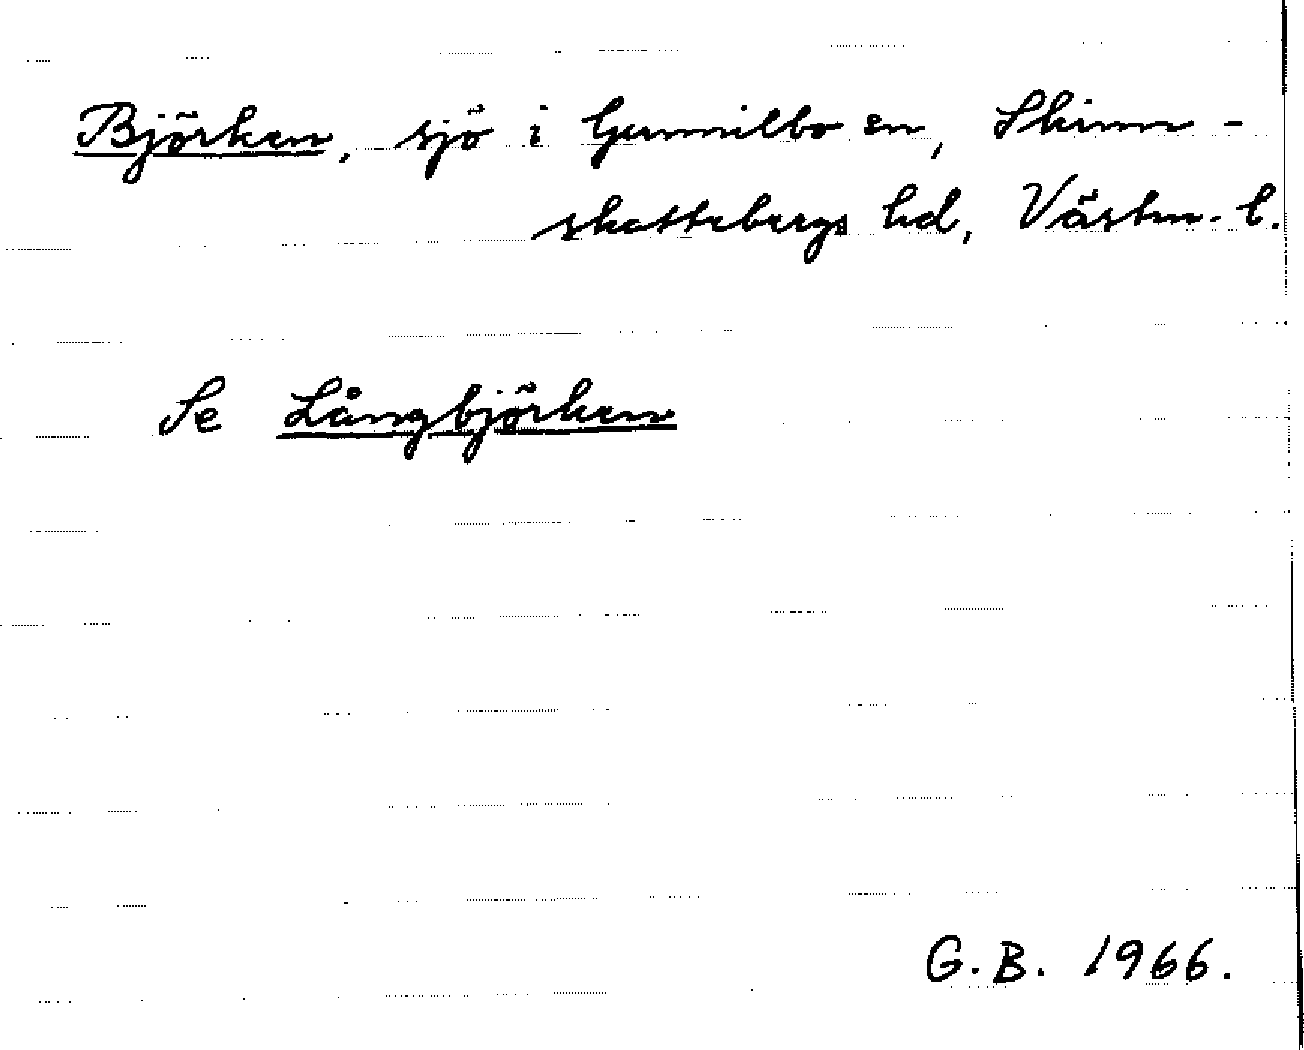 Björken, sjö i Gunnilbo sn, Skinn-
skattebergs hd, Västm. l.
Se Långbjörken
G.B. 1966.